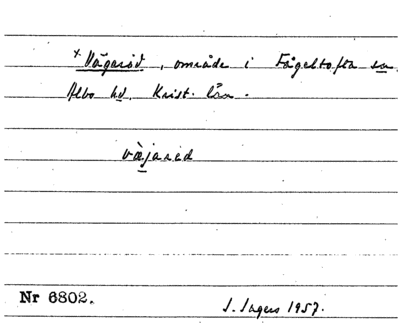 x Vägaröd, område i Fågeltofta sn.
Albo hd. Krist. län.
väjaröd
Nr 6802.
J. Ingers 1957.